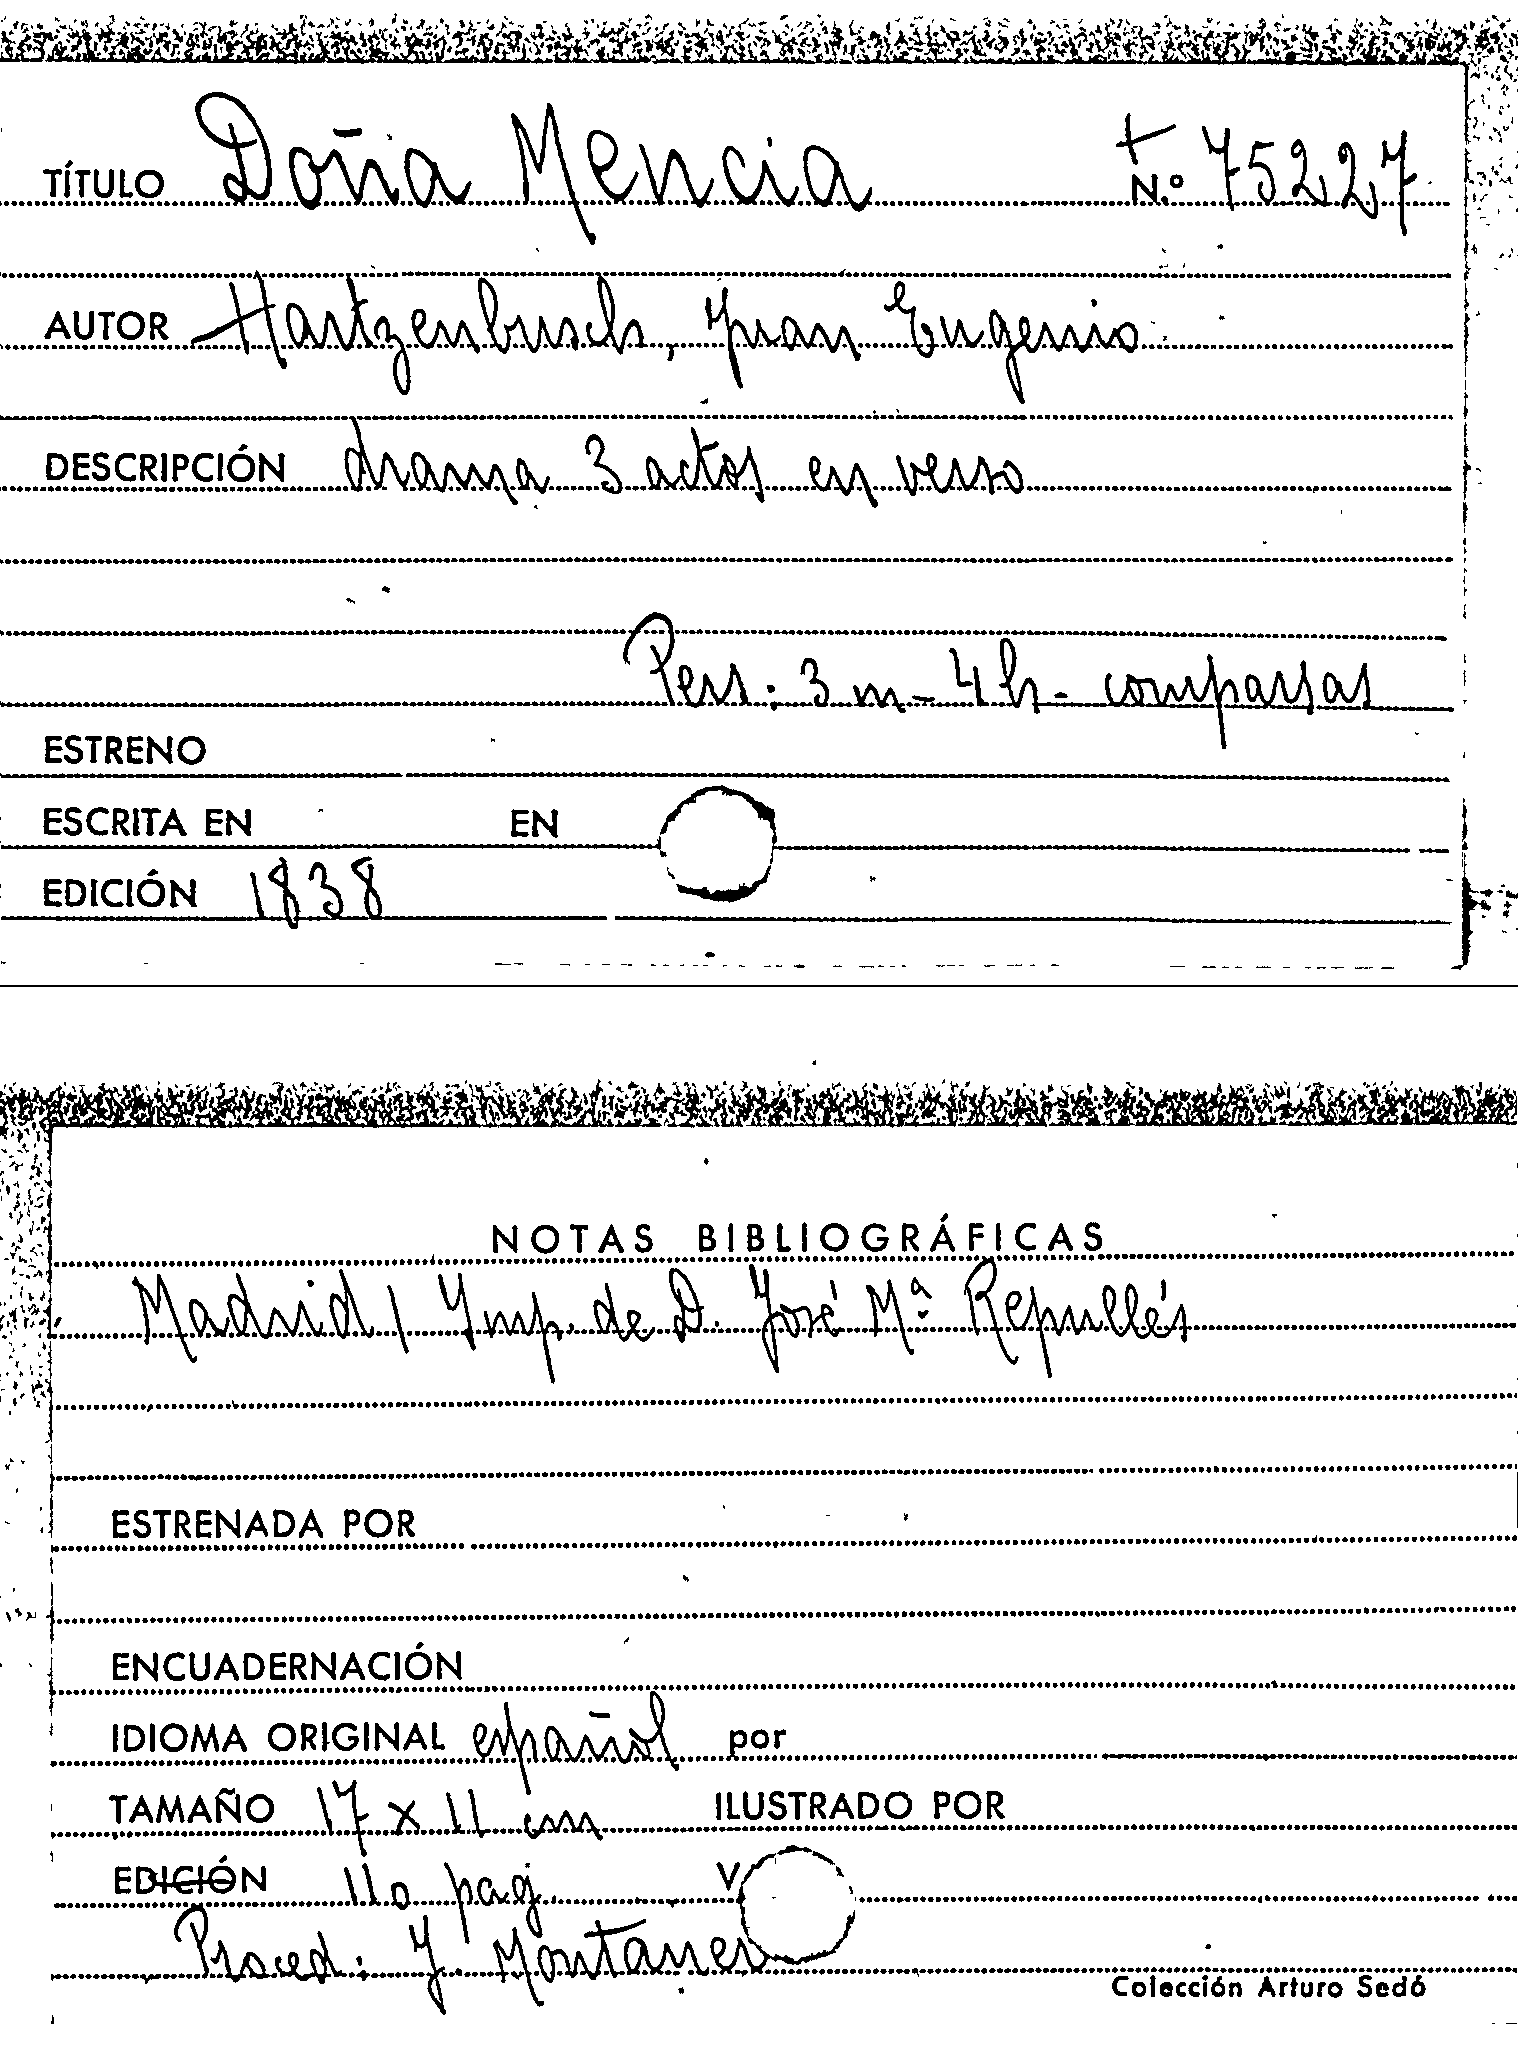 TÍTULO Doña Mencia Nº 75227
AUTOR Hartzenbusch, Juan Eugenio
DESCRIPCIÓN drama 3 actos en verso
Pers: 3 m - 4 h - comparsas
ESTRENO
ESCRITA EN EN
EDICIÓN 1838
NOTAS BIBLIOGRÁFICAS
Madrid / Ymp. de D. José Mª Repullés
ESTRENADA POR
ENCUADERNACIÓN
IDIOMA ORIGINAL español por
TAMAÑO 17 x 11 cm ILUSTRADO POR
EDICIÓN 110 pag. V
Proced: J. Montaner
Colección Arturo Sedó